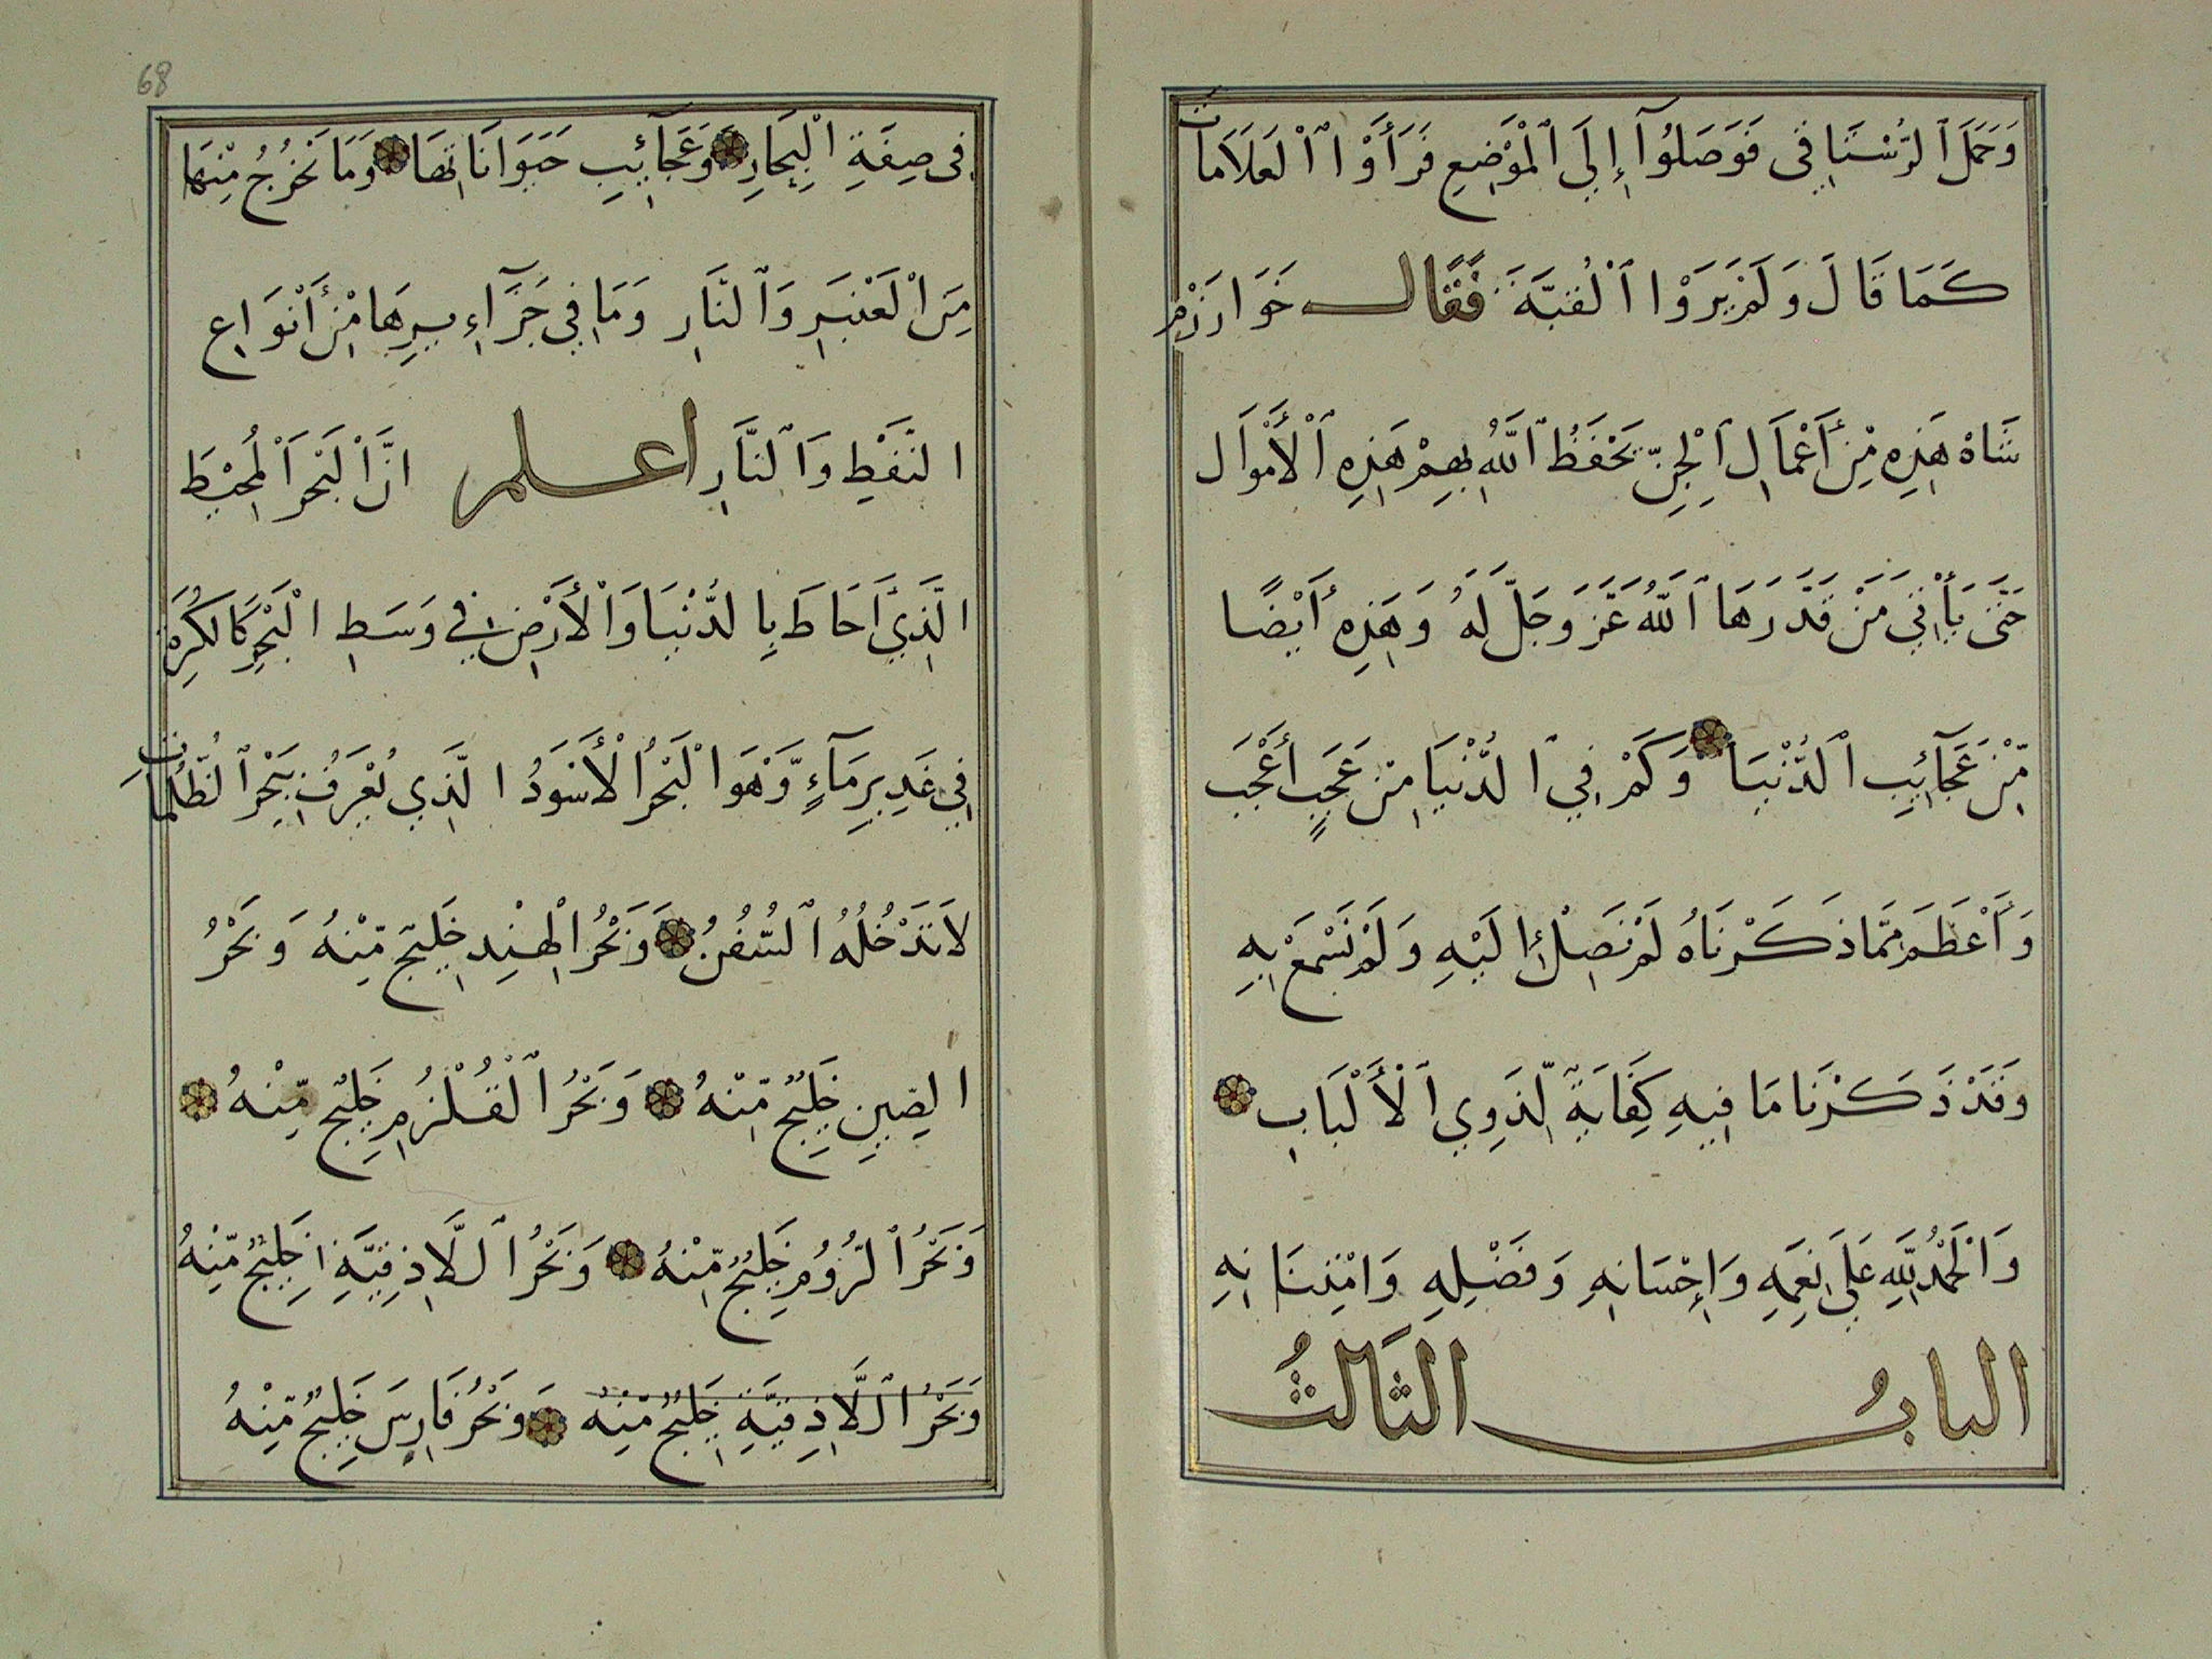 وَحَمَلَ ٱلرُّسْتَاقِي فَوَصَلُوٓا إِلَى ٱلْمَوْضِعِ فَرَأَوْا ٱلْعَلَامَات
كَمَا قَالَ وَلَمْ يَرَوْا ٱلْقُبَّةَ فَقَالَ خَوَارَزْم
شَاهْ هَذِهِ مِنْ أَعْمَالِ ٱلْجِنِّ يَحْفَظُ ٱللَّهُ بِهِمْ هَذِهِ ٱلْأَمْوَال
حَتَّى يَأْتِيَ مَنْ قَدَّرَهَا ٱللَّهُ عَزَّ وَجَلَّ لَهُ وَهَذِهِ أَيْضًا
مِّنْ عَجَآئِبِ ٱلدُّنْيَا وَكَمْ فِي ٱلدُّنْيَا مِنْ عَجَبٍ أَعْجَبَ
وَأَعْظَمَ مِمَّا ذَكَرْنَاهُ لَمْ نَصِلْ إِلَيْهِ وَلَمْ نَسْمَعْ بِهِ
وَقَدْ ذَكَرْنَا مَا فِيهِ كِفَايَةٌ لِّذَوِي ٱلْأَلْبَابِ
وَالْحَمْدُ لِلَّهِ عَلَى نِعَمِهِ وَإِحْسَانِهِ وَفَضْلِهِ وَامْتِنَانِهِ
البابُ الثَالثُ
فِى صِفَةِ الْبِحَارِ وَعَجَآئِبِ حَيَوَانَاتِهَا وَمَا يَخْرُجُ مِنْهَا
مِنَ الْعَنْبَرِ وَٱلنَّارِ وَمَا فِي جَزَآءِيرِهَا مِنْ أَنْوَاعِ
النَّفْطِ وَٱلنَّارِ اعلم انَّ الْبَحْرَ الْمُحِيْطَ
الَّذِيٓ أَحَاطَ بِالدُّنْيَا وَالْأَرْضِ فِي وَسَطِ الْبَحْرِ كَالْكُرَةِ
فِي غَدِيرِ مَآءٍ وَّهْوَ الْبَحْرُ الْأَسْوَدُ الَّذِي يُعْرَفُ بِبَحْرِ ٱلظُّلُمَاتِ
لَا تَدْخُلُهُ ٱلسُّفُنُ وَبَحْرُ الْهِنْدِ خَلِيج مِّنْهُ وَبَحْرُ
الصِّينِ خَلِيجٌ مِّنْهُ وَبَحْرُ ٱلْقُلْزُمِ خَلِيجٌ مِّنْهُ
وَبَحْرُ ٱلرُّومِ خَلِيجٌ مِّنْهُ وَبَحْرُ ٱللَّاذِقِيَّةِ خَلِيجٌ مِّنْهُ
وَبَحْرُ ٱللَّاذِقِيَّةِ خَلِيجٌ مِّنْهُ وَبَحْرُ فَارِسَ خَلِيجٌ مِّنْهُ
68